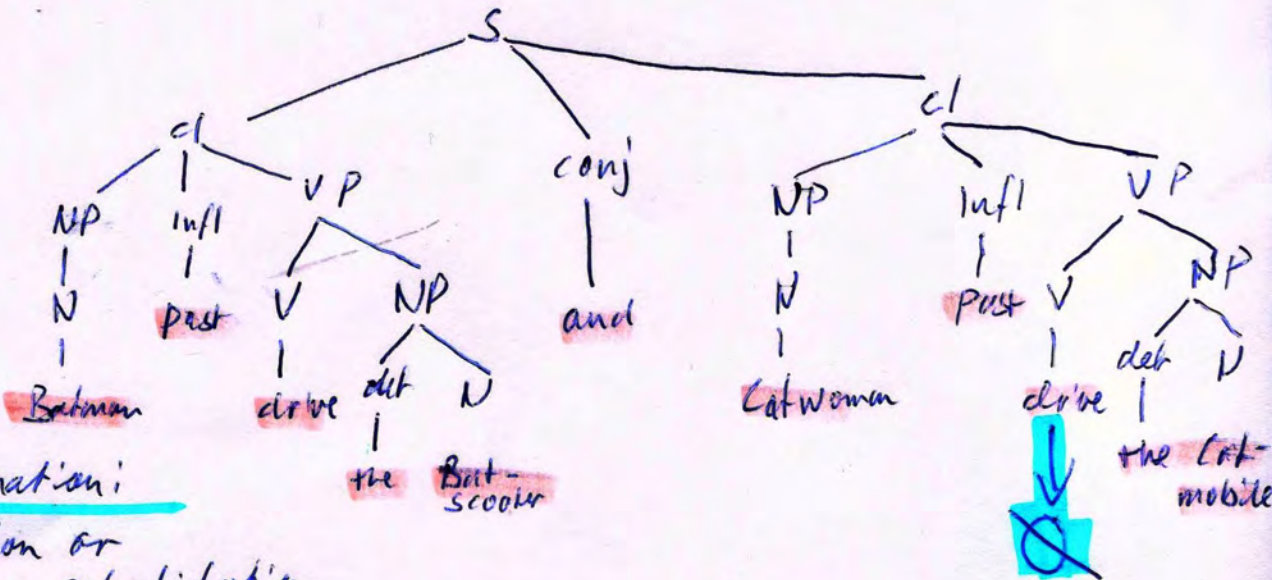 S
cl conj cl
NP Infl VP NP Infl VP
N past V NP and N past V NP
Batman drive det N Catwoman drive det N
the Bat-
scooter
the Cat-
mobile
Ø
ation:
on or